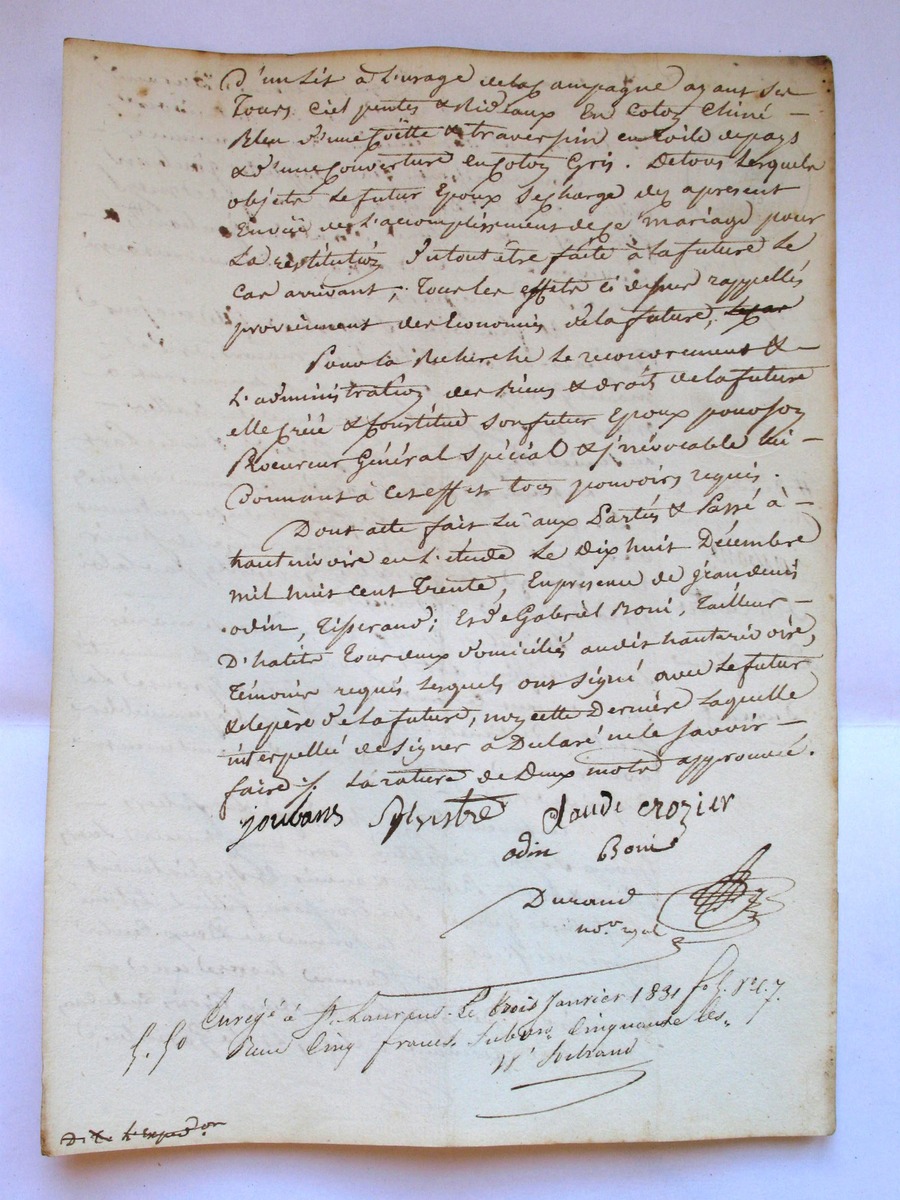 D'un Lit à L'usage de la Campagne ayant Ses
Tours Ciel pentes & Rideaux En Coton Chiné
Bleu d'une Coëtte & traversin en toile de pays
& d'une Couverture en Coton Gris. De tous Lesquels
objets Le futur Epoux Se charge des apresent
En vüe de L'accomplissement de Ce mariage pour
La restitution Du tout être faite à La future Le
Cas arrivant; Tous Les effets ci dessus rappellés
proviennent des Economies de La future,
Pour La Recherche Le recouvrement &
L'administration des Biens & droits de La future
elle Créé & Constitue Son futur Epoux pour Son
Procureur Général Spécial & irrévocable Lui
Donnant à Cet effet tous pouvoirs requis.
Dont acte fait Lu aux Parties & Passé à
hauterivoire en L'étude Le Dix huit Décembre
mil huit Cent Trente, En presence de Jean denis
odin, Tisserand; Et de Gabriel Boni, Tailleur
D'habits Tous deux domiciliés audit hauterivoire,
Témoins requis Lesquels ont Signé avec Le futur
& Le père de La future, non cette Dernière Laquelle
interpellée de Signer a Déclaré ne Le Savoir
faire. La rature de Deux mots approuvée.
joubans Sylvestre Claude Crozier
odin Boni
Durand
Enregé à St Laurent Le trois Janvier 1831 fo 5. Ro C. 7.
Reçu Cinq francs Subon Cinquante Ces